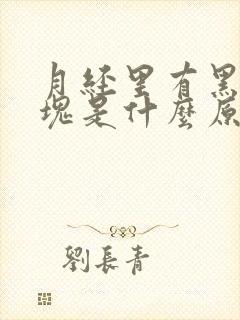 月经里有黑
塊是什麼原
劉長青